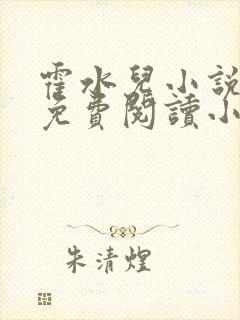 霍水兒小說
免費閱讀小
朱清煌